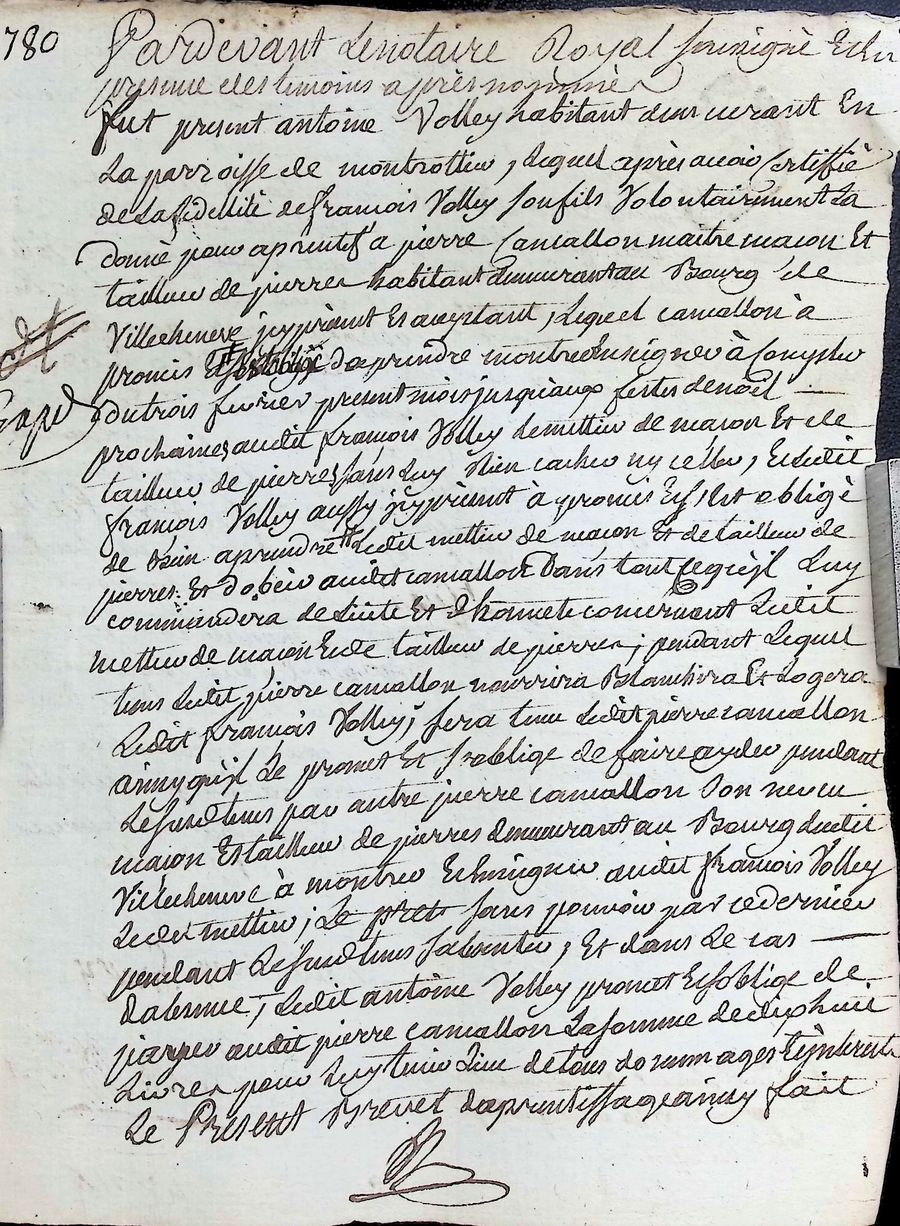 1780
Pardevant Lenotaire Royal soussigné Et En
presence des temoins après nommes
fut present antoine Volley habitant demeurant En
La parroisse de montrottier, Lequel après avoir Certiffié
de La fidellité de francois Volley son fils Volontairement La
donné pour aprentif a pierre Camallon maitre macon Et
tailleur de pierres habitant demeurant au Bourg de
Villechenève jcy présent Et aceptant, Lequel camallon à
promis Et s'est obligé daprendre montrer Enseigner à Compter
du trois fevrier present mois jusqu'aux festes denoël
prochaines audit francois Volley le mettier de macon Et de
tailleur de pierres sans Luy Rien cacher ny céller, Et Ledit
francois Volley aussy jcy présent à promis Et s'Est obligé
de bien aprendre Ledit mettier de macon Et de tailleur de
pierres. Et dobéir audit camallon Dans tout Ce qu'jl Luy
commandera de Licite Et d'honnete concernant Ledit
mettier de macon Et de tailleur de pierres; pendant Lequel
tems Ledit pierre camallon nourrira Blanchira Et Logera
Ledit francois Volley; sera tenu Ledit pierre camallon
ainsy qu'jl Le promet Et s'oblige de faire ayder pendant
Lesusd tems par autre pierre camallon son neveu
macon Et tailleur de pierres demeurant au Bourg dudit
Villechenève à montrer Et Enseigner audit francois Volley
Ledit mettier; Le pret sans pouvoir par ce dernier
pendant Lesusd tems sabsenter, Et dans Le cas
dabsence, Ledit antoine Volley promet Et s'oblige de
payer audit pierre camallon La somme de dixhuit
Livres pour Luy tenir Lieu de tous dommages Et jnterets
Le Present Brevet daprentissage ainsy fait